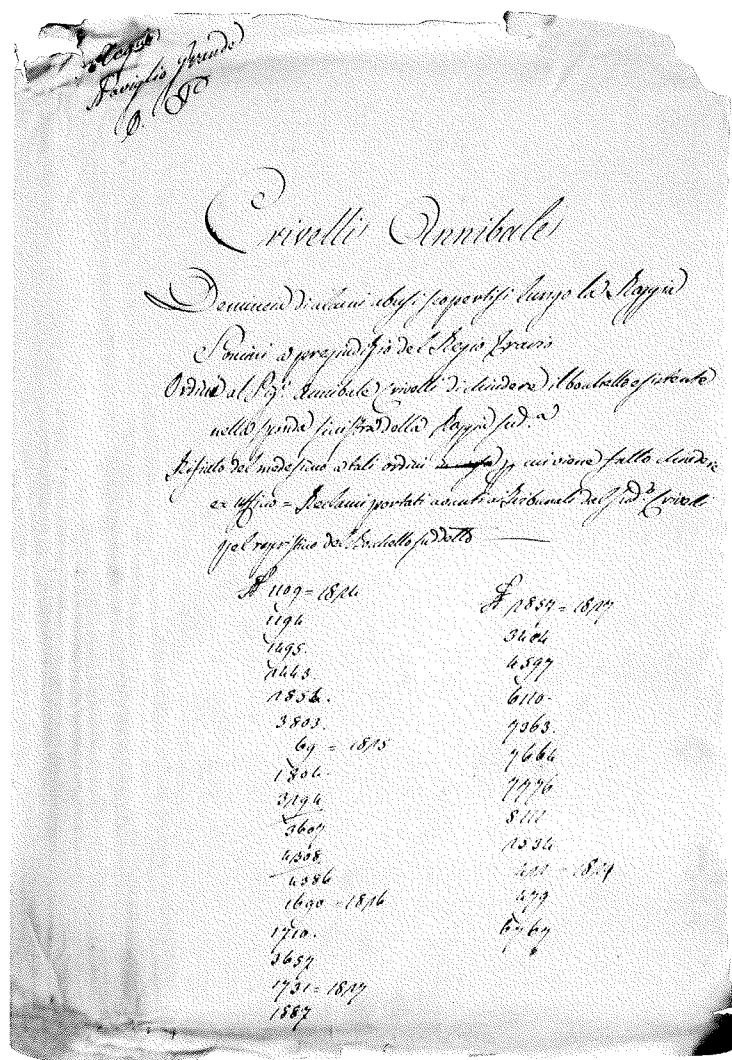 Acque
Naviglio Grande
Crivelli Annibale
Denuncia di alcuni abusi scopertisi lungo la Roggia
a pregiudizio del Regio Erario
Ordini al Sig.r Annibale Crivelli di chiudere il bochello esistente
nella sponda sinistra della Roggia sud.a
Rifiuto del medesimo a tali ordini per cui viene fatto chiudere
ex uffizio = Reclami portati avanti i Tribunali dal Crivelli
pel ripristino del Bochello suddetto
N 1109 = 1814
1194
1495.
1443
1854.
3803.
69 = 1815
1804.
3194
3607
4308.
4386
1690 = 1816
1710.
3657
1731 = 1817
1887
N 1857 = 1817
3404
4597
6110.
7363.
7664
7776
8111
479
6767